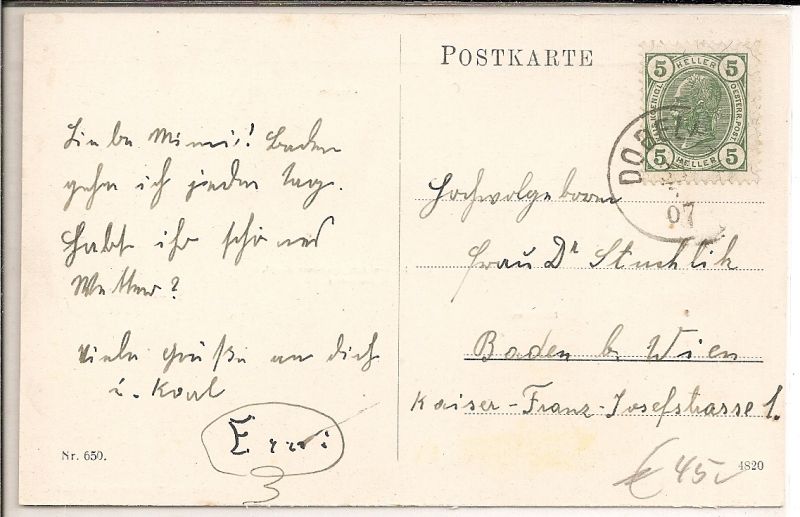 Liebe Mimi! Baden
gehn ich jeden Tag.
Habt ihr schönes
Wetter?
Viele Grüße an dich
u. Karl
Erni
Nr. 650.
POSTKARTE
5 HELLER 5
KAIS. KOENIGL. OESTERR. POST.
5 HELLER 5
DOBEL
07
Hochwolgeboren
Frau Dr Stuchlik
Baden b. Wien
Kaiser-Franz-Josefstrasse 1.
€ 45,-
4820